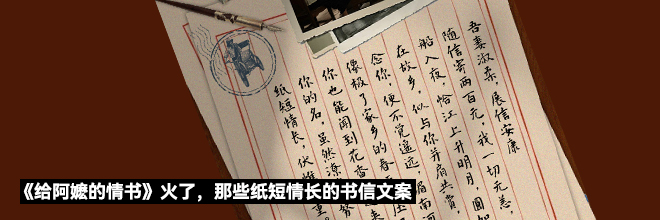 吾妻淑柔，展信安康
随信寄两百元，我一切无恙
船入夜，恰江上升明月，圆如
在故乡，似与你并肩共赏，
念你，便不觉遥远
像极了家乡的春
你也能闻到花香
你的名，虽然潦
纸短情长，伏惟
《给阿嬷的情书》火了，那些纸短情长的书信文案